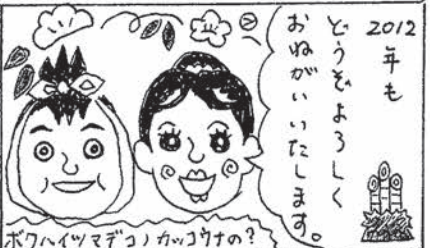 2012年も
どうぞよろしく
おねがいいたします。
ボクハイツマデコノカッコウナの?